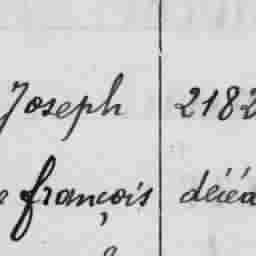 Joseph 2182
françois décéd